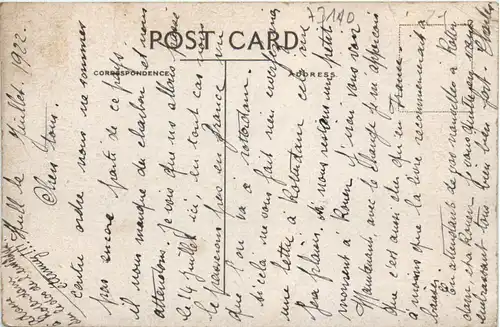 POST CARD
CORRESPONDENCE
ADDRESS
73140
Hull le Juillet 1922
Chers tous.
contre ordre nous ne sommes
pas encore partis de ce pays
il nous manque du charbon et nous
attendons. Je crois que nous allons
le 14 Juillet ici en tout cas nous
le passerons pas en France vu
que l'on va à Rotterdam.
si cela ne vous fait rien envoyez moi
une lettre à Rotterdam cela me
fera plaisir. si nous restons un petit
moment à Rouen j'irai vous voir
Maintenant avec le change je m'aperçois
que c'est aussi cher qu'en France.
à moins que la livre recommence à
baisser.
En attendant de vos nouvelles à Rotterdam
ou à Rouen je vous quitte en vous
embrassant tous bien fort. Charles